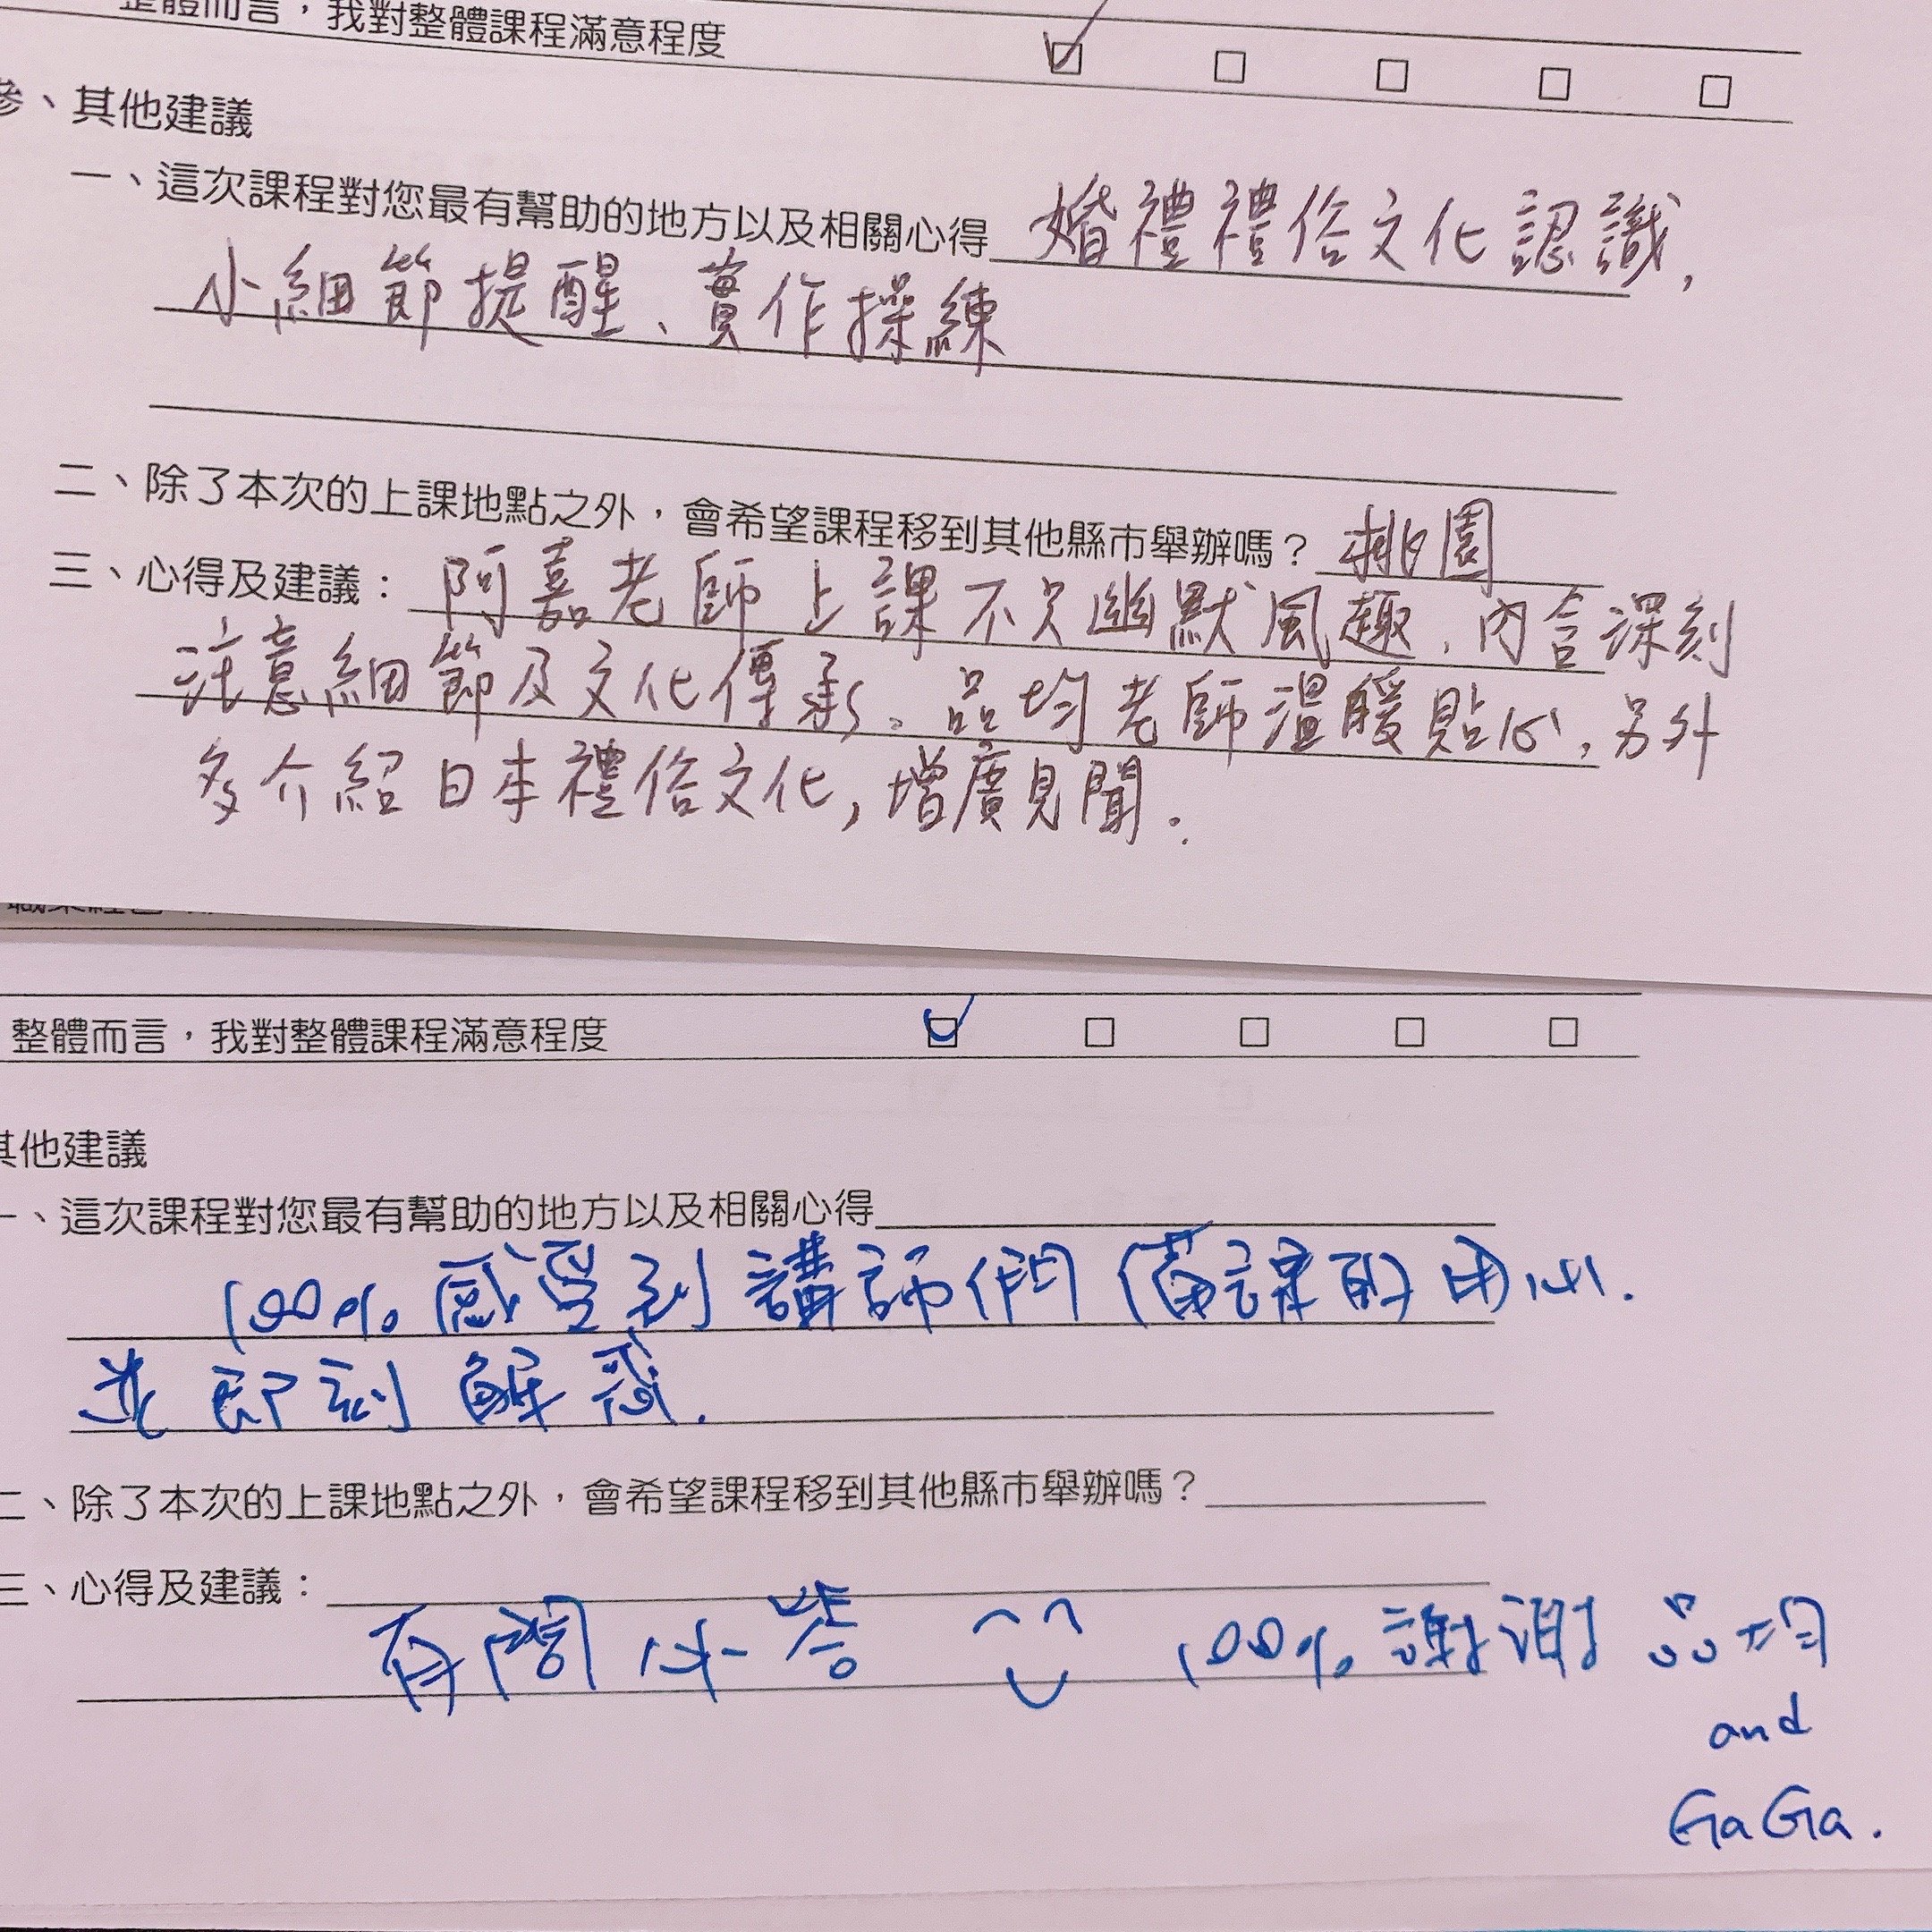 整體而言，我對整體課程滿意程度
參、其他建議
一、這次課程對您最有幫助的地方以及相關心得 婚禮禮俗文化認識,
小細節提醒、實作操練
二、除了本次的上課地點之外，會希望課程移到其他縣市舉辦嗎？桃園
三、心得及建議：阿嘉老師上課不只幽默風趣、內含深刻
注意細節及文化傳承。品均老師溫暖貼心,另外
多介紹日本禮俗文化,增廣見聞。
整體而言，我對整體課程滿意程度
其他建議
一、這次課程對您最有幫助的地方以及相關心得
100% 感受到講師們備課的用心.
並即刻解惑.
二、除了本次的上課地點之外，會希望課程移到其他縣市舉辦嗎？
三、心得及建議：
有問必答 100% 謝謝 品均
and
GaGa.